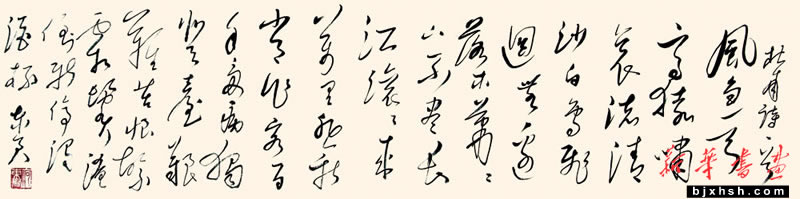 杜甫詩一首
風急天
高猿嘯
哀渚清
沙白鳥飛
迴無邊
落木蕭〻
下不盡長
江滾〻來
萬里悲秋
常作客百
年多病獨
登臺艱
難苦恨繁
霜鬢潦
倒新停濁
酒杯
华書畫
bjxhsh.com